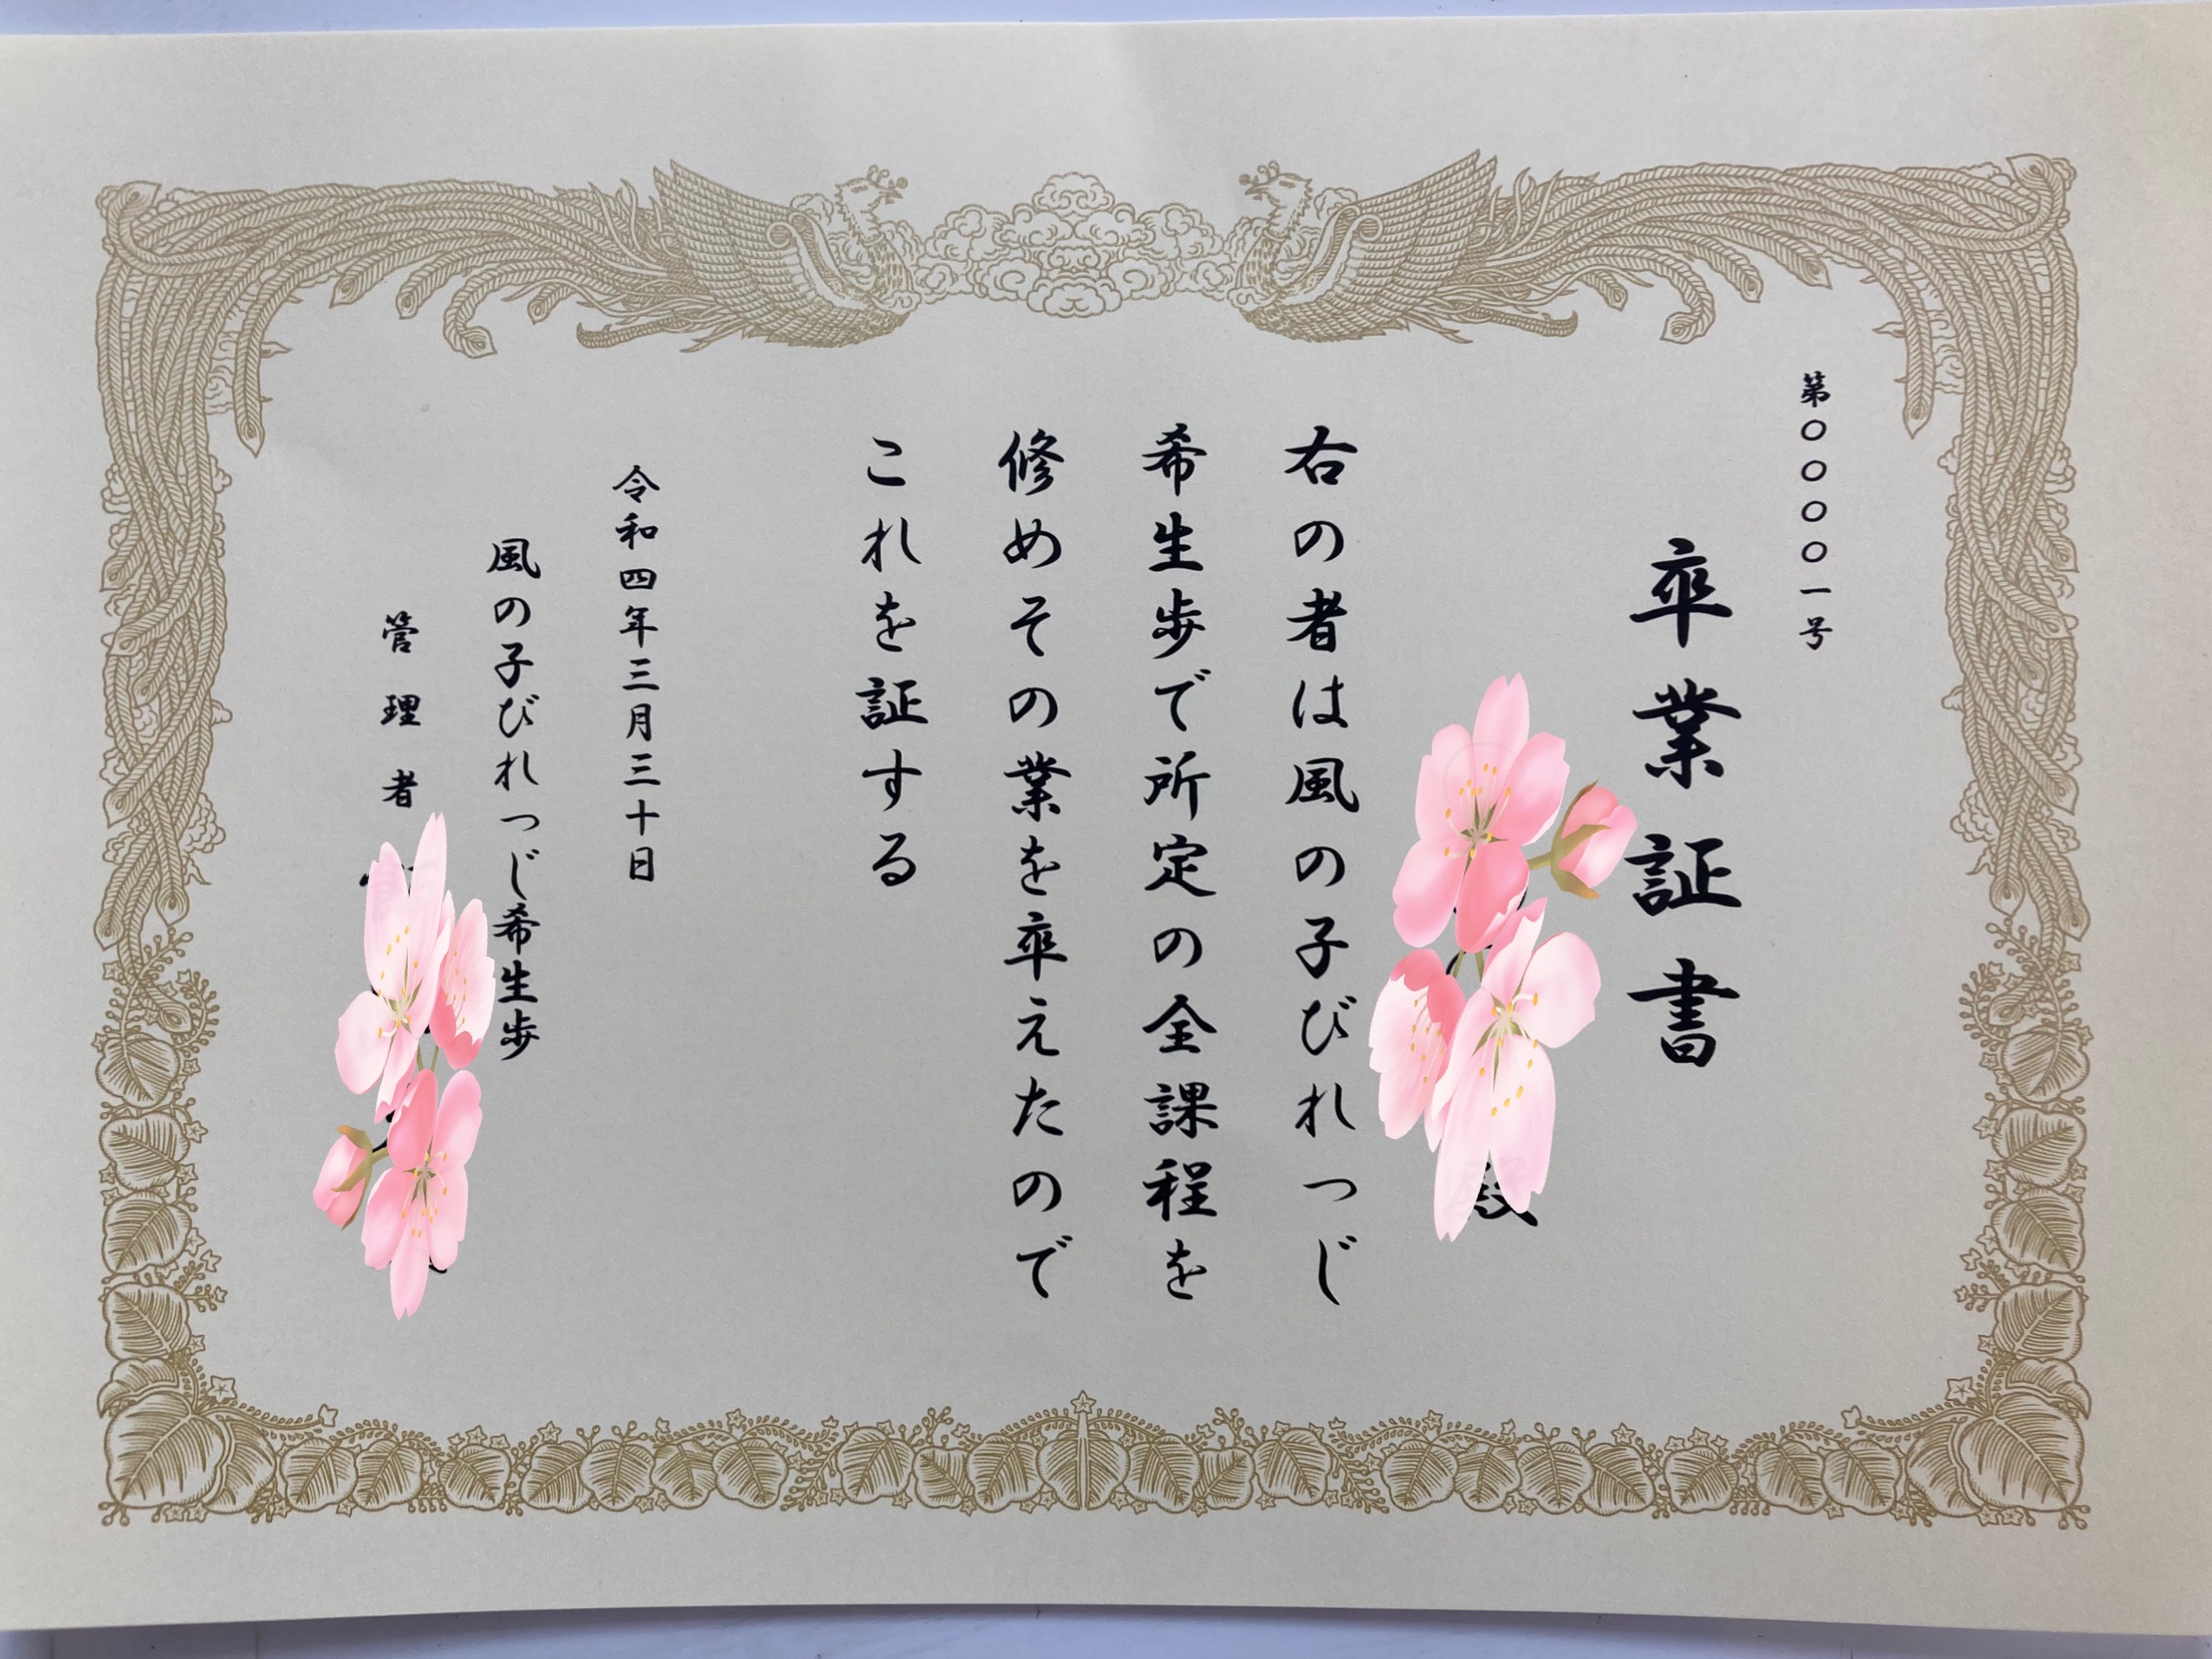 第〇〇〇〇一号
卒業証書
殿
右の者は風の子びれっじ
希生歩で所定の全課程を
修めその業を卒えたので
これを証する
令和四年三月三十日
風の子びれっじ希生歩
管理者